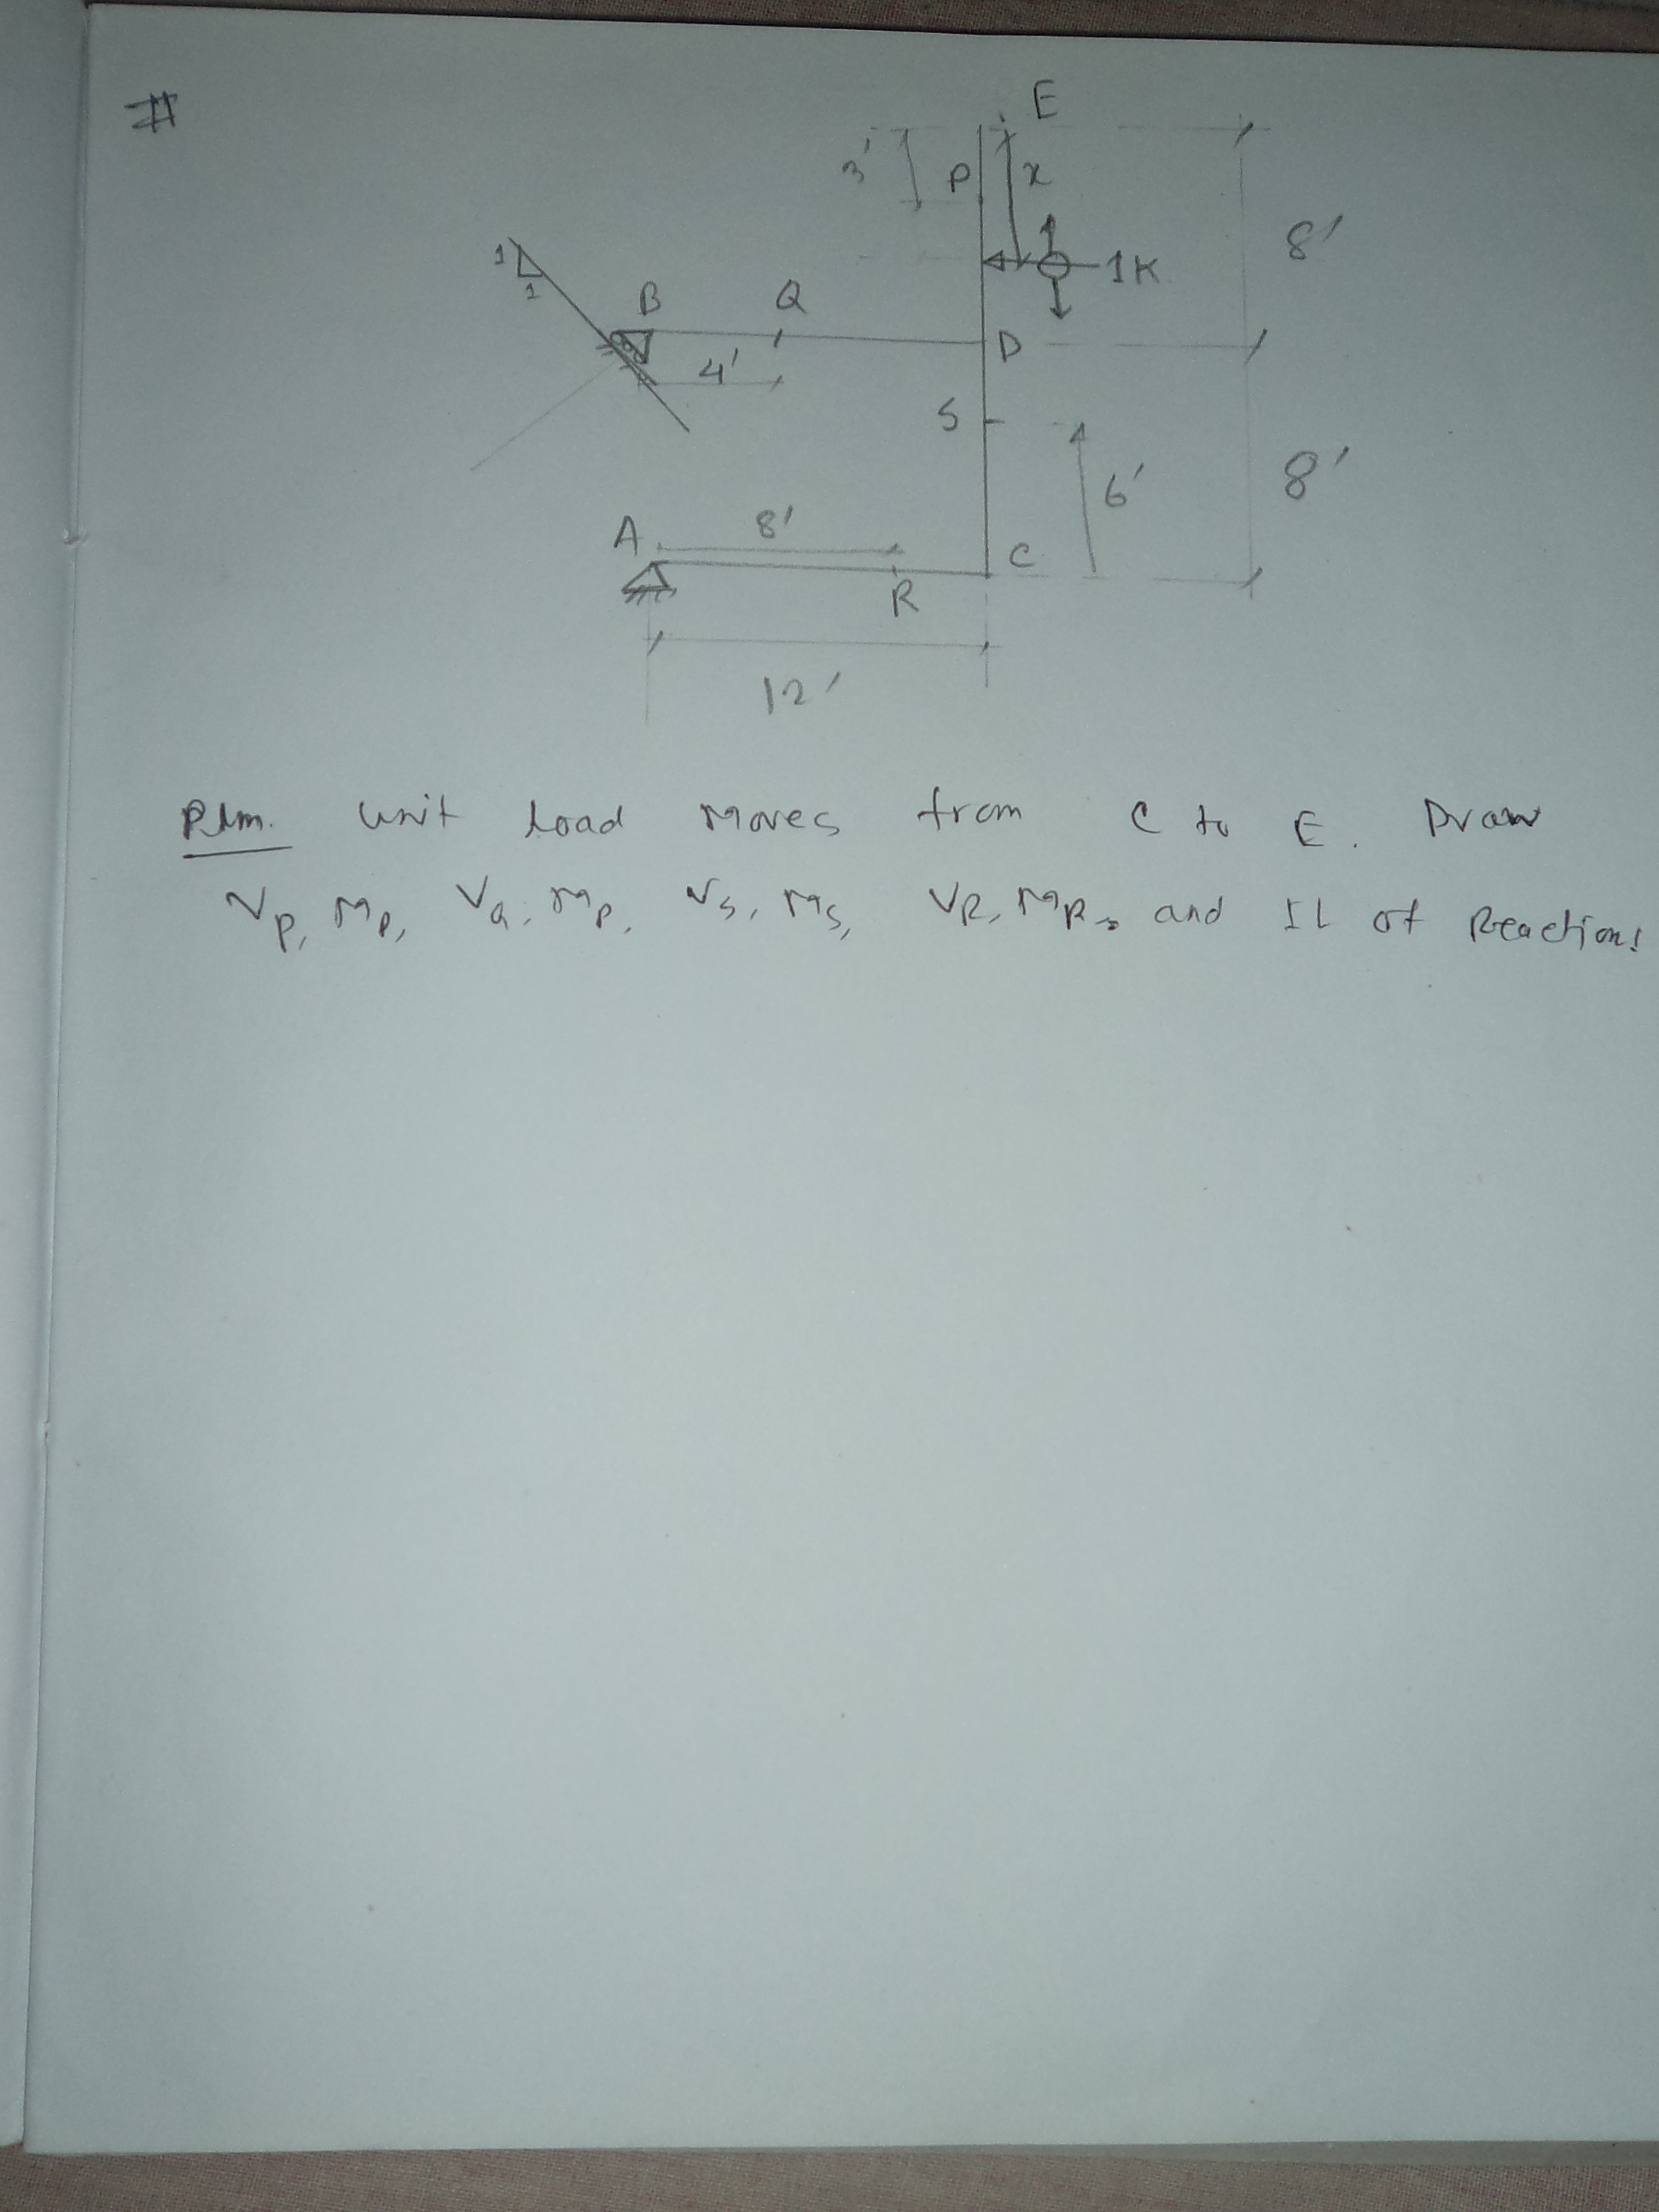 #
E
3'
P
x
8'
1
1
1K
B
Q
D
4'
S
6'
8'
A
8'
C
R
12'
Plm. Unit load moves from C to E. Draw
Vp, Mp, VQ, Mp, Vs, Ms, VR, MR, and IL of Reactions